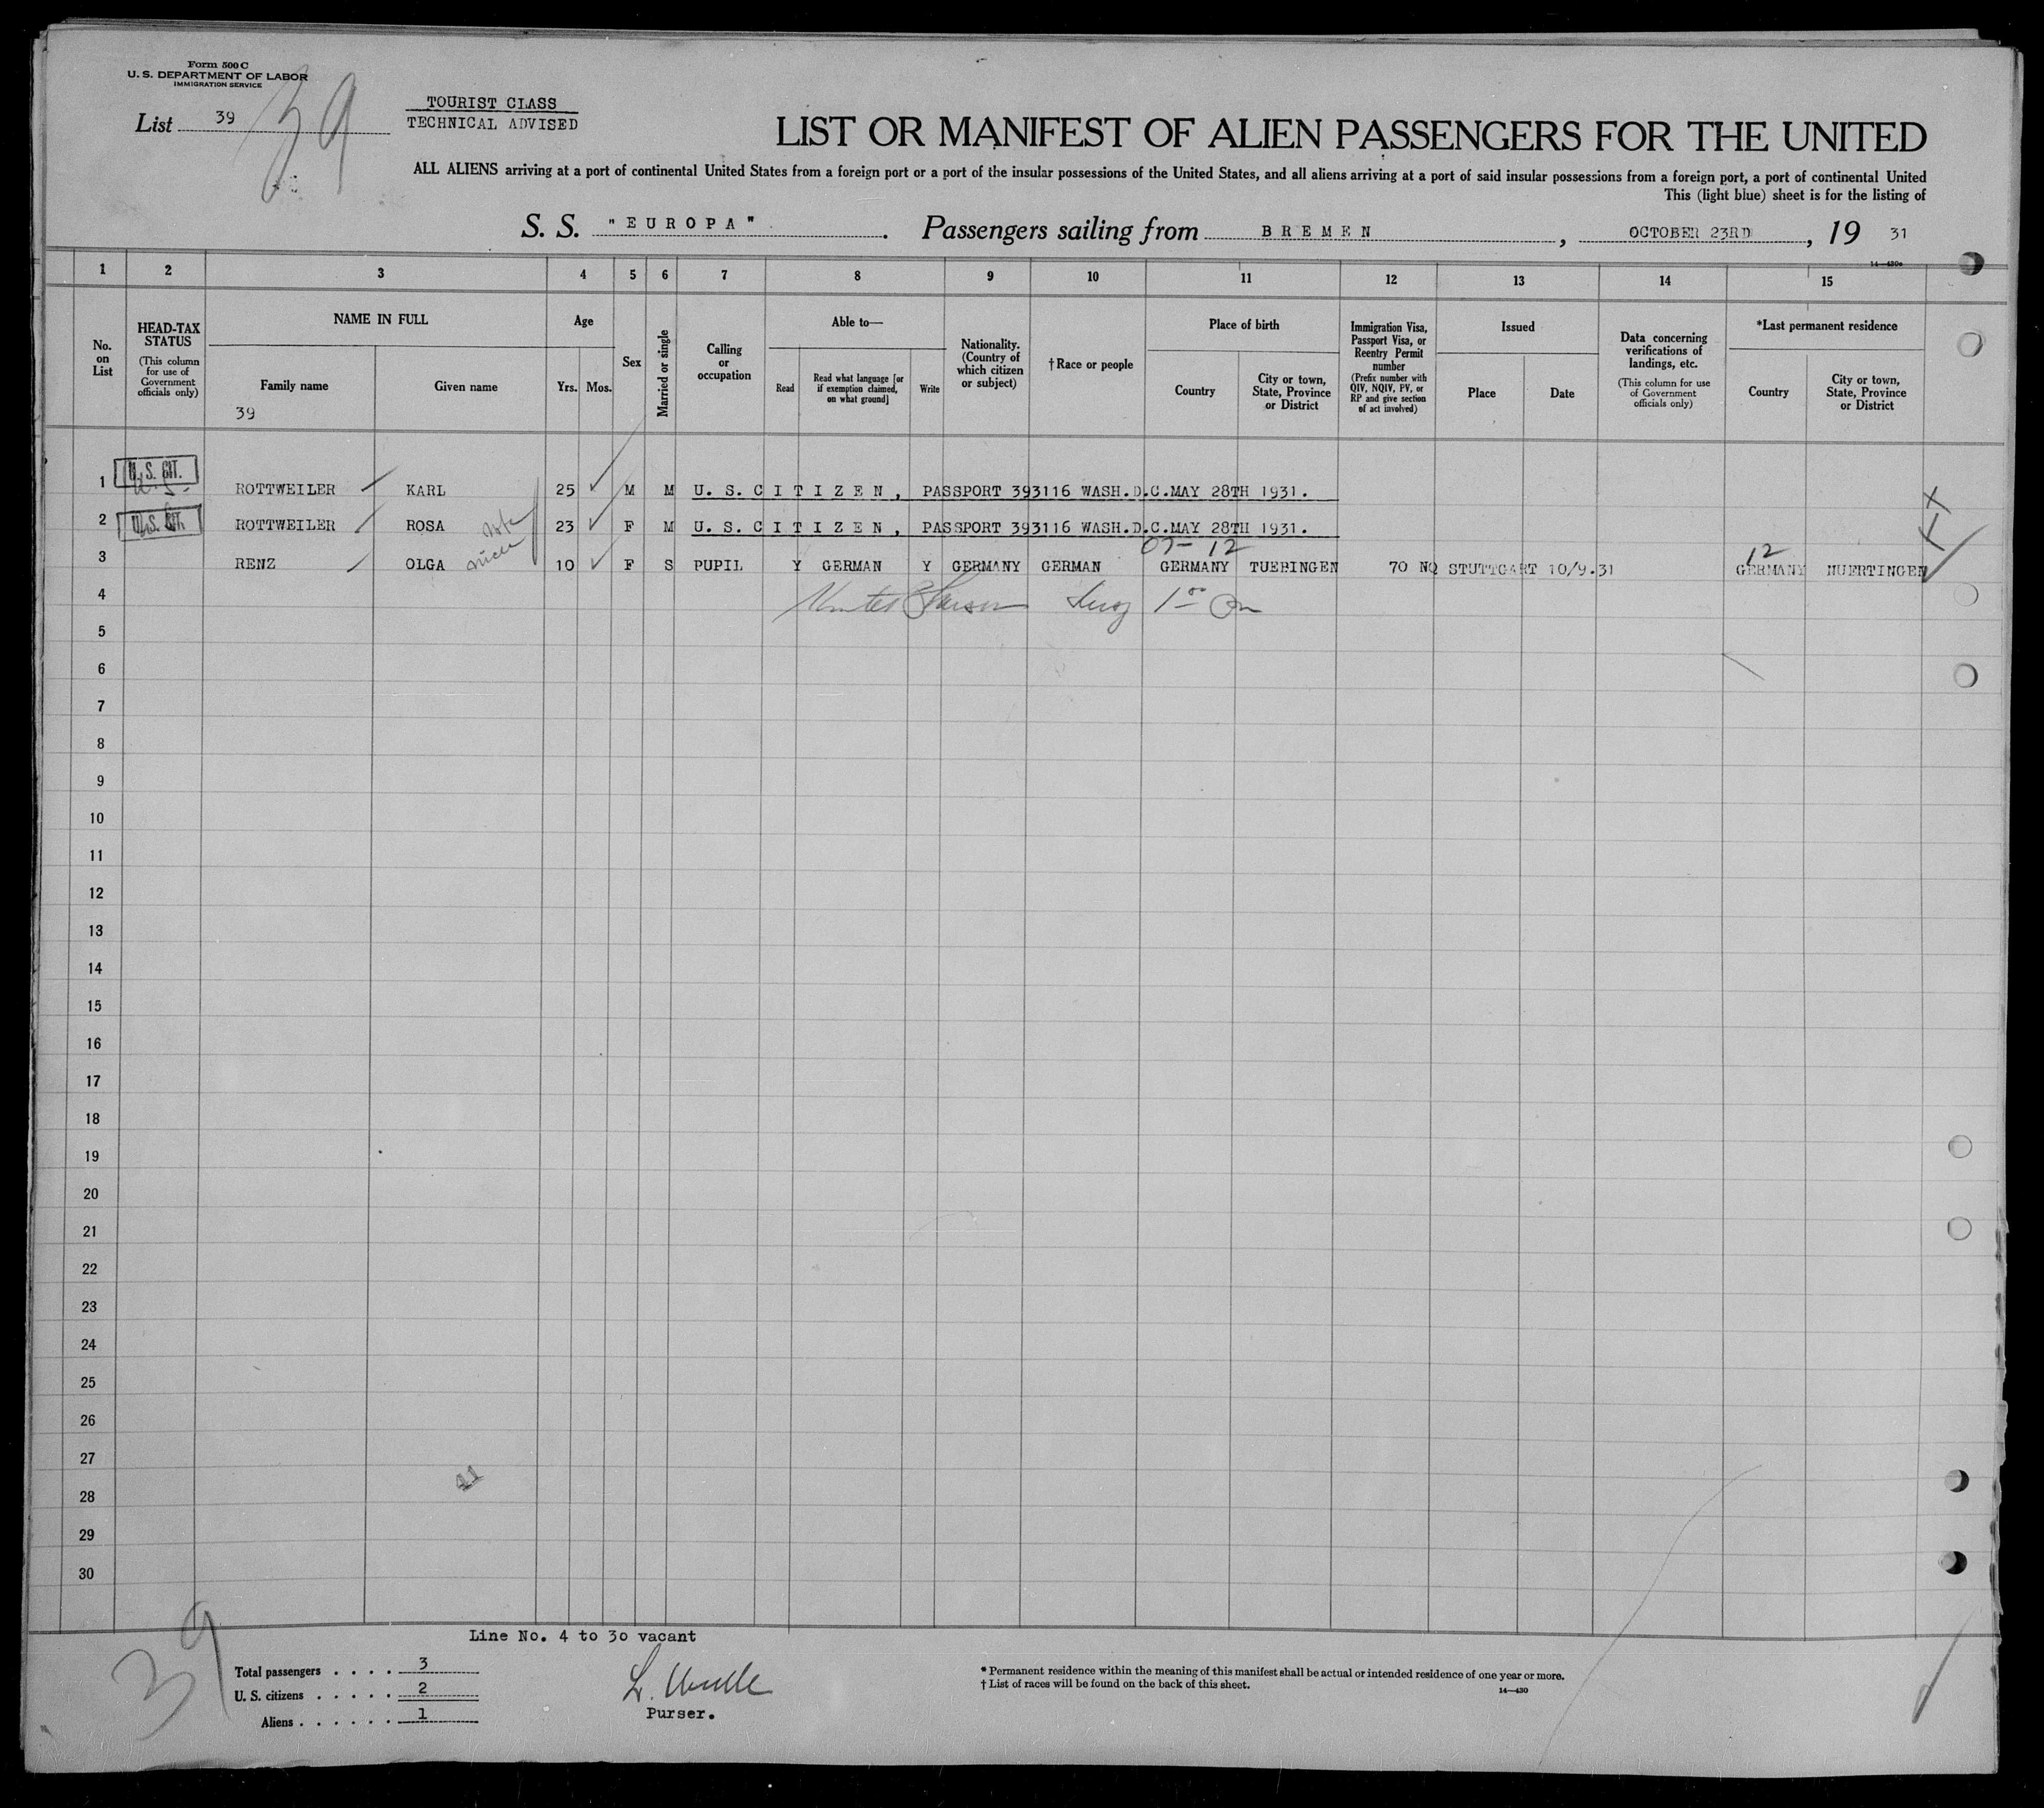 Form 500 C
U. S. DEPARTMENT OF LABOR
IMMIGRATION SERVICE
List 39
39
TOURIST CLASS
TECHNICAL ADVISED
LIST OR MANIFEST OF ALIEN PASSENGERS FOR THE UNITED
ALL ALIENS arriving at a port of continental United States from a foreign port or a port of the insular possessions of the United States, and all aliens arriving at a port of said insular possessions from a foreign port, a port of continental United
This (light blue) sheet is for the listing of
S. S. "EUROPA". Passengers sailing from BREMEN, OCTOBER 23RD, 19 31
14—430a
1 2 3 4 5 6 7 8 9 10 11 12 13 14 15
No. on List
HEAD-TAX STATUS
(This column for use of Government officials only)
NAME IN FULL
Family name
Given name
39
Age
Yrs. Mos.
Sex
Married or single
Calling or occupation
Able to—
Read
Read what language [or if exemption claimed, on what ground]
Write
Nationality. (Country of which citizen or subject)
† Race or people
Place of birth
Country
City or town, State, Province or District
Immigration Visa, Passport Visa, or Reentry Permit number
(Prefix number with QIV, NQIV, PV, or RP and give section of act involved)
Issued
Place
Date
Data concerning verifications of landings, etc.
(This column for use of Government officials only)
*Last permanent residence
Country
City or town, State, Province or District
1 U.S. CIT. ROTTWEILER KARL 25 M M U. S. CITIZEN, PASSPORT 393116 WASH.D.C.MAY 28TH 1931.
2 U.S. CIT. ROTTWEILER ROSA 23 F M U. S. CITIZEN, PASSPORT 393116 WASH.D.C.MAY 28TH 1931.
niece
07-12
12
3 RENZ OLGA 10 F S PUPIL Y GERMAN Y GERMANY GERMAN GERMANY TUEBINGEN 70 NQ STUTTGART 10/9.31 GERMANY NUERTINGEN
4
5
6
7
8
9
10
11
12
13
14
15
16
17
18
19
20
21
22
23
24
25
26
27
28
29
30
41
39
Line No. 4 to 30 vacant
Total passengers . . . . 3
U. S. citizens . . . . . 2
Aliens . . . . . . 1
Purser.
* Permanent residence within the meaning of this manifest shall be actual or intended residence of one year or more.
† List of races will be found on the back of this sheet.
14—430